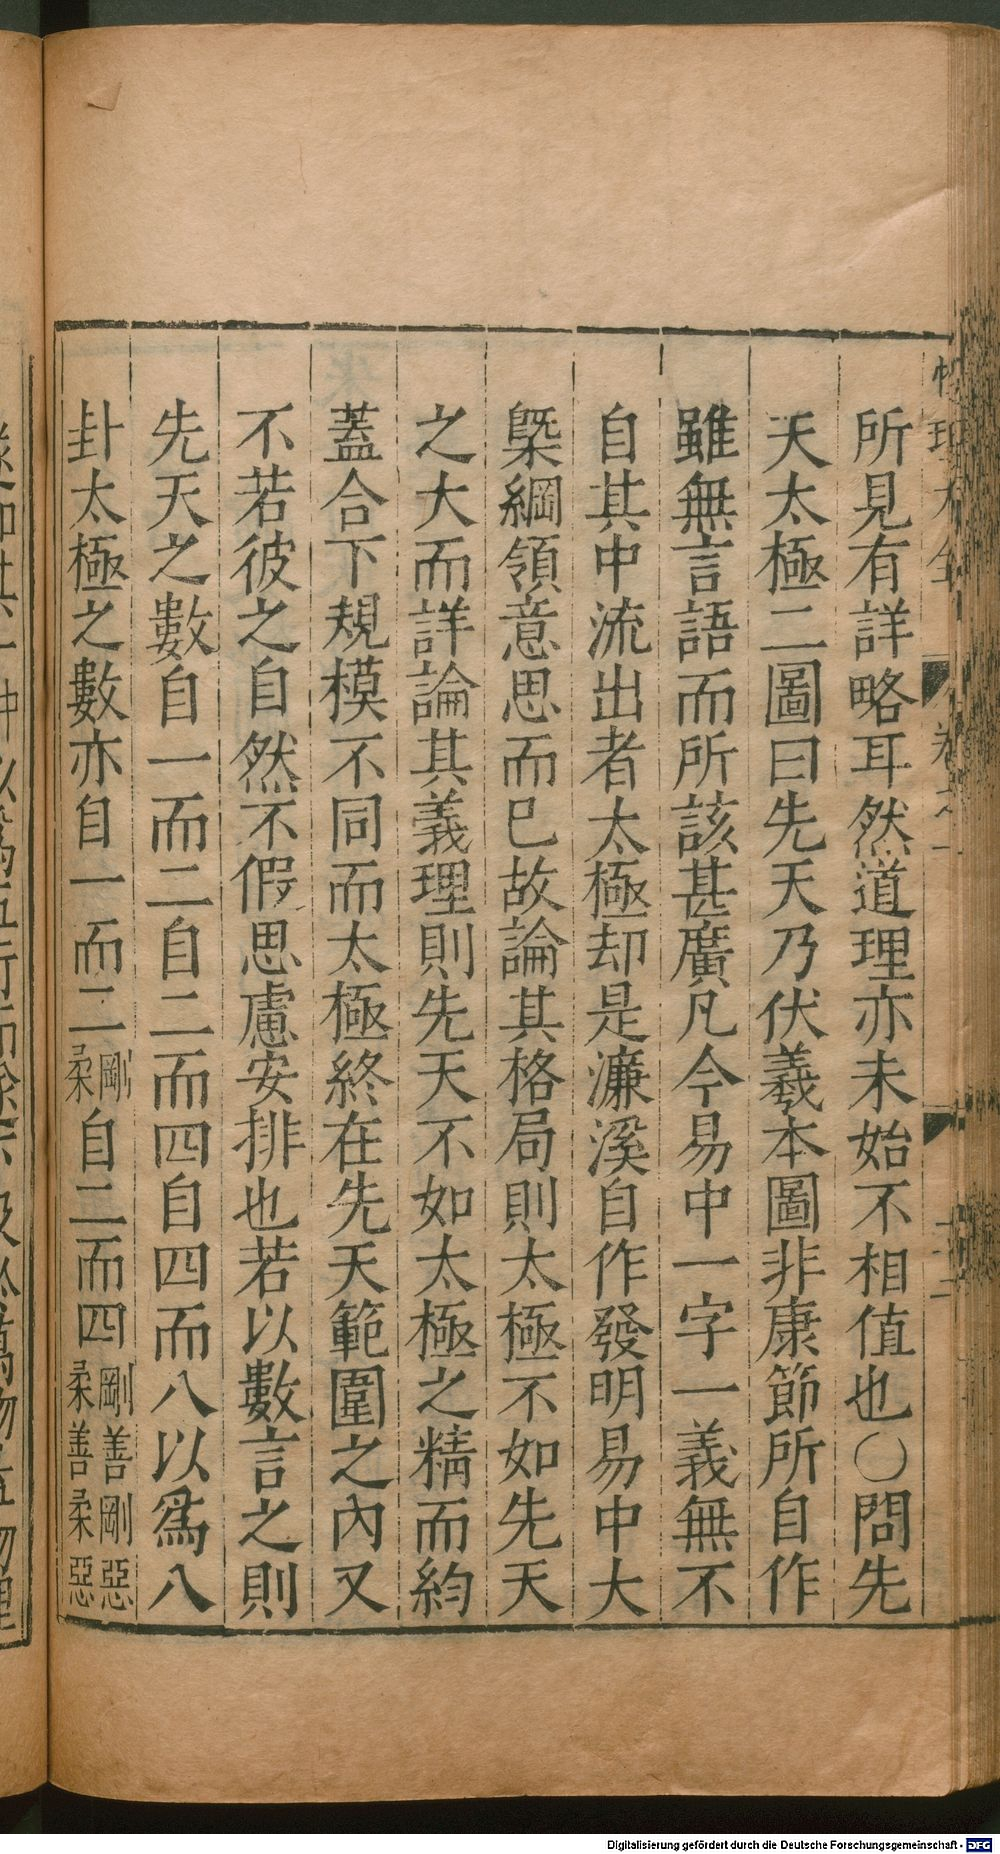 所見有詳略耳然道理亦未始不相値也○問先
天太極二圖曰先天乃伏羲本圖非康節所自作
雖無言語而所該甚廣凡今易中一字一義無不
自其中流出者太極却是濂溪自作發明易中大
槩綱領意思而已故論其格局則太極不如先天
之大而詳論其義理則先天不如太極之精而約
蓋合下規模不同而太極終在先天範圍之內又
不若彼之自然不假思慮安排也若以數言之則
先天之數自一而二自二而四自四而八以爲八
卦太極之數亦自一而二剛柔自二而四剛善剛惡柔善柔惡
Digitalisierung gefördert durch die Deutsche Forschungsgemeinschaft - DFG